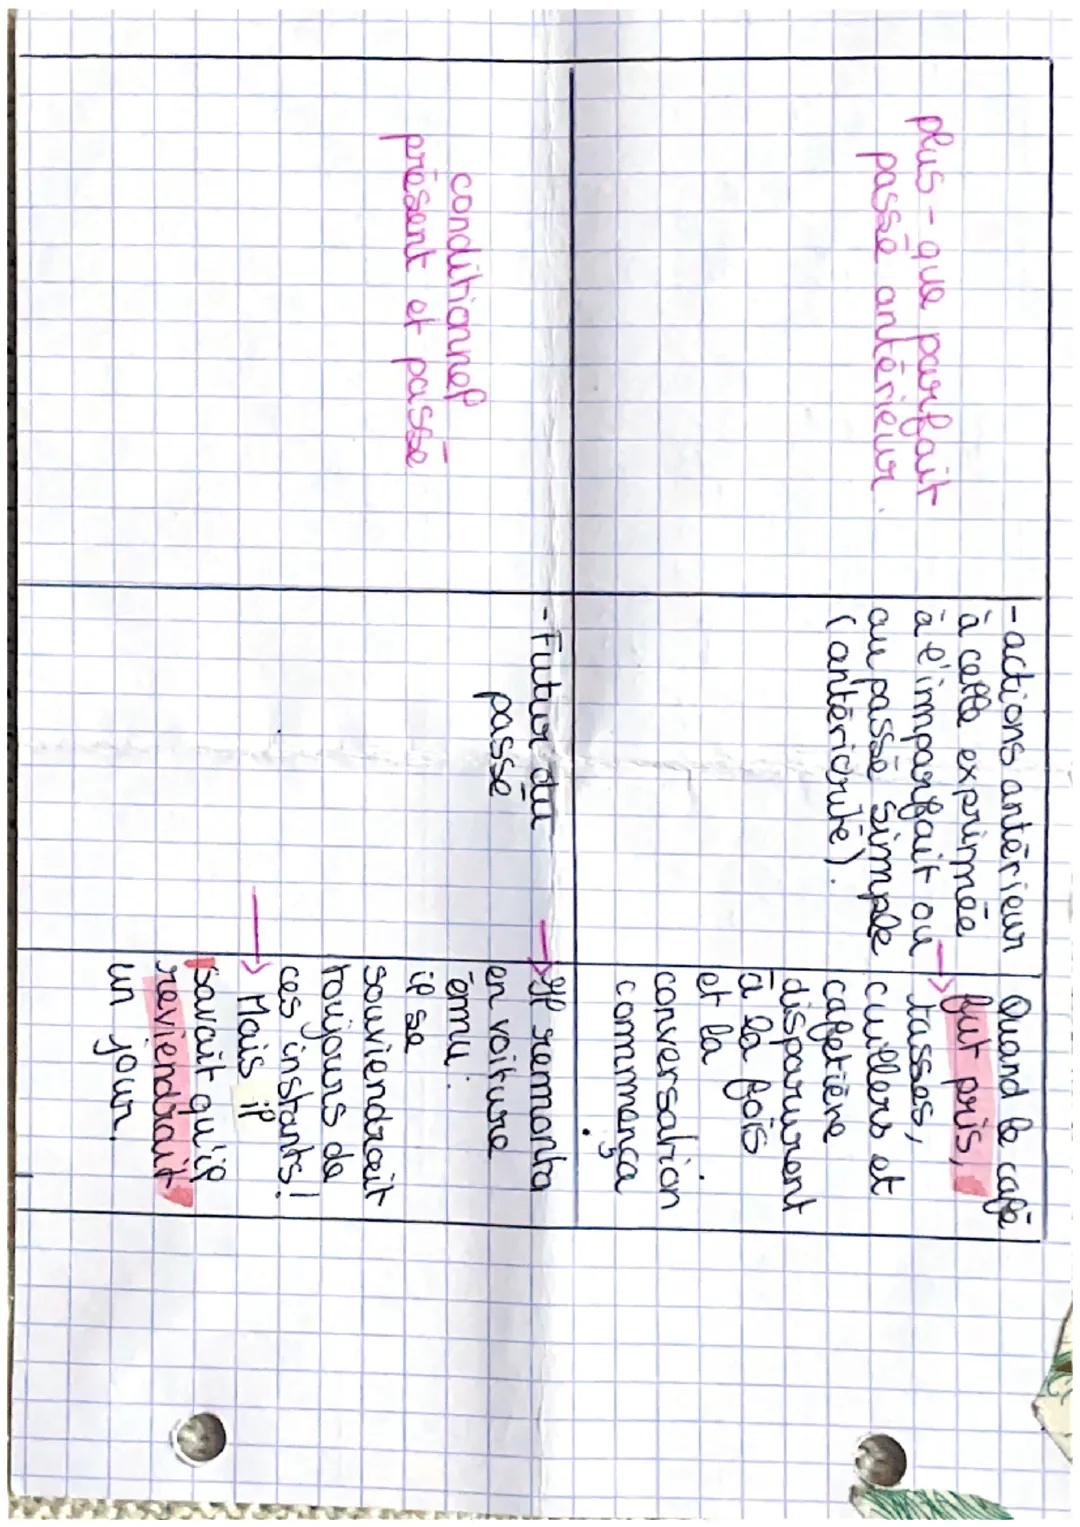 plus-que parfait
passé antérieur.
-actions antérieur
à celle exprimée
à l'imparfait ou
au passé simple
(antériorité).
Quand le café
→ fut pris,
tasses,
cuillers et
cafetière
disparurent
à la fois
et la
conversation
commença
conditionnel
présent et passé
-Futur du
passé
→ Il remonta
en voiture
ému :
il se
souviendrait
toujours de
ces instants!
→ Mais il
savait qu'il
reviendrait
un jour.